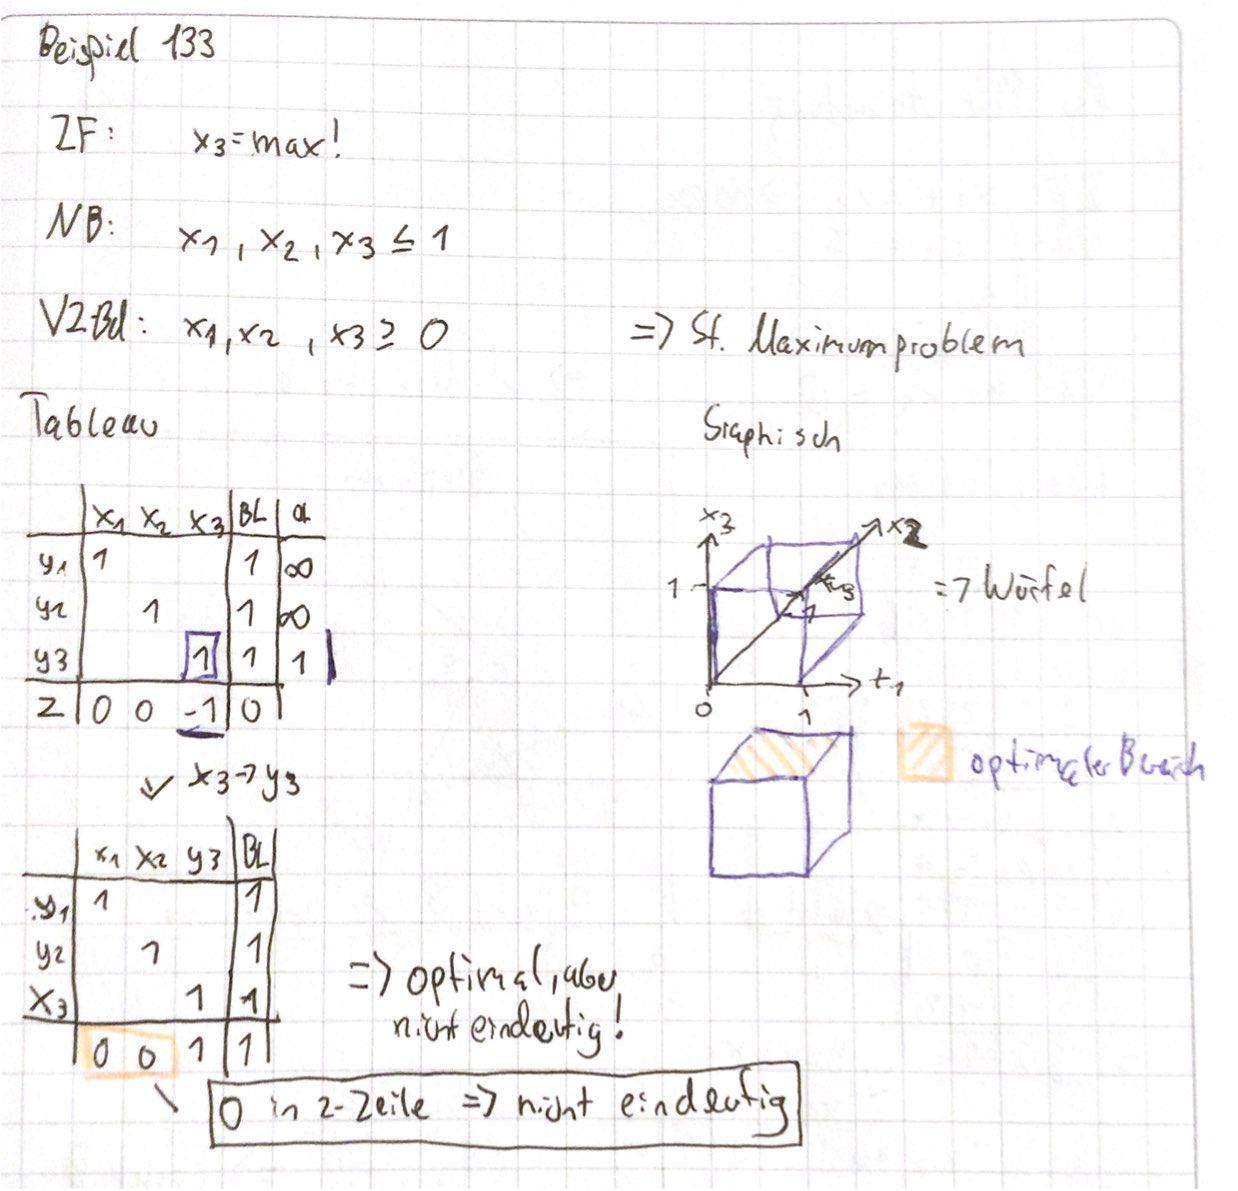 Beispiel 133
ZF: x3 = max!
NB: x1, x2, x3 ≤ 1
VZBd: x1, x2, x3 ≥ 0 => St. Maximumproblem
Tableau
x1 x2 x3 BL α
y1 1 1 ∞
y2 1 1 ∞
y3 1 1 1
Z 0 0 -1 0
x3 → y3
x1 x2 y3 BL
y1 1 1
y2 1 1
x3 1 1
0 0 1 1
=> optimal, aber
nicht eindeutig!
0 in z-Zeile => nicht eindeutig
Graphisch
x3
x2
1
1
=> Würfel
0
1
optimaler Bereich